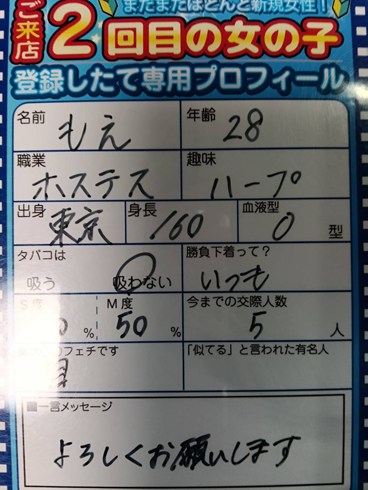 まだまだほとんど新規女性!
ご来店2回目の女の子
登録したて専用プロフィール
名前 もえ 年齢 28
職業 ホステス 趣味 ハープ
出身 東京 身長 160 血液型 O 型
タバコは 吸う 吸わない 勝負下着って? いつも
S度 % M度 50 % 今までの交際人数 5 人
フェチです 「似てる」と言われた有名人
目
■一言メッセージ
よろしくお願いします